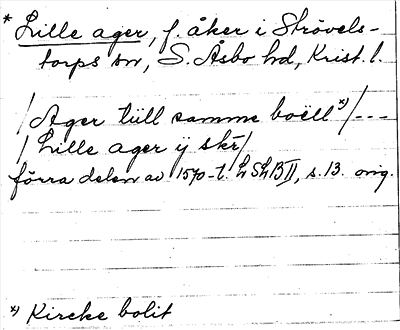 * Lille ager, f. åker i Strövels-
torps sn, S. Åsbo hd, Krist. l.
/ Ager tiill samme boëll *) / ---
/ Lille ager ÿ skr̄ /
förra delen av 1570-t. LSLB II, s. 13. orig.
*) Kircke bolit